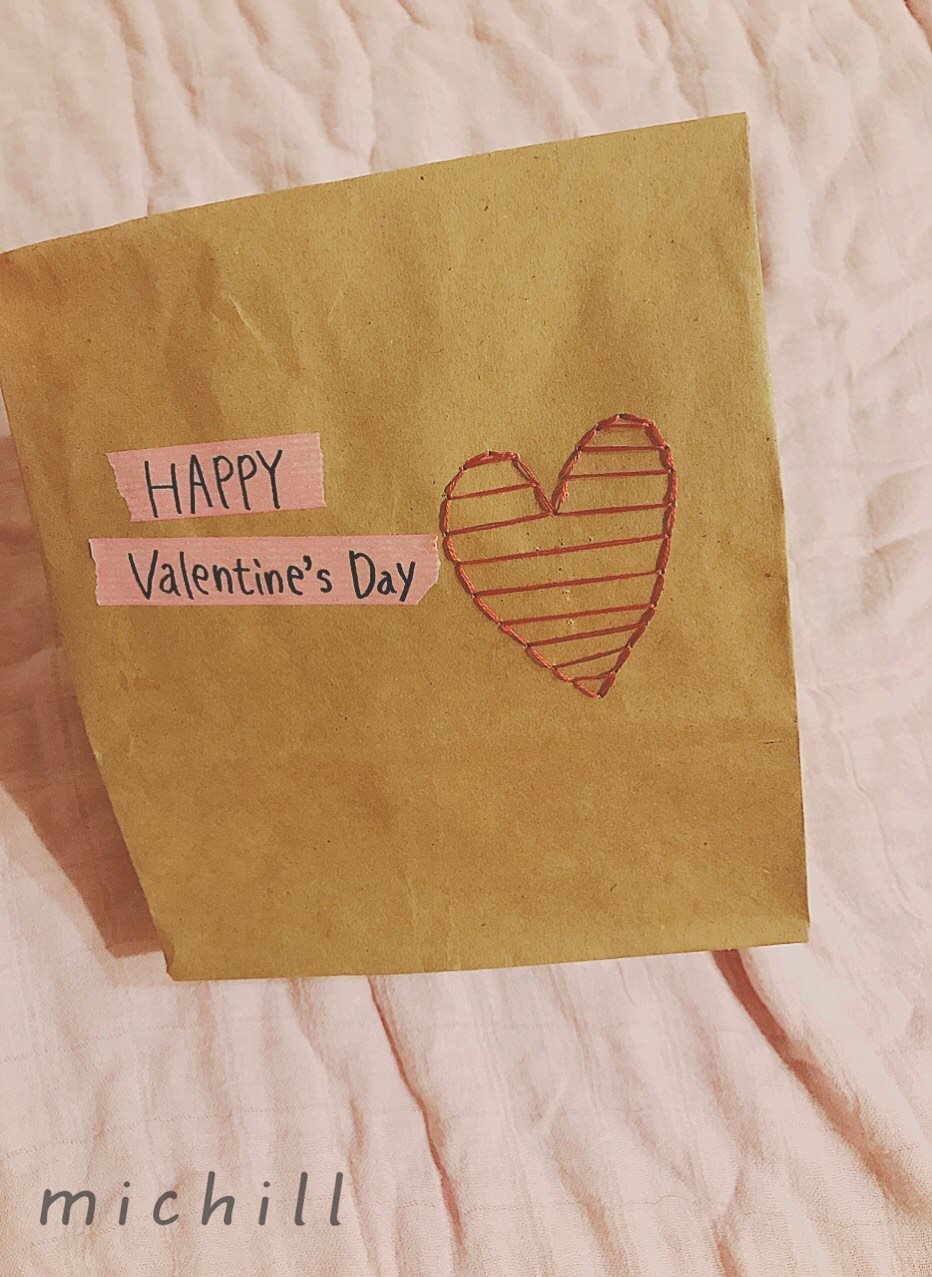 HAPPY
Valentine's Day
michill